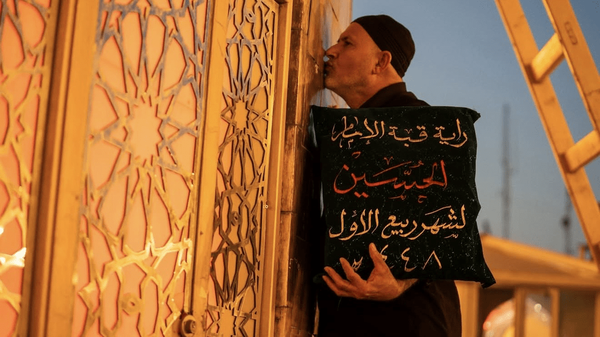 راية قبة الإمام
الحسين
لشهر ربيع الأول
١٤٤٨هـ